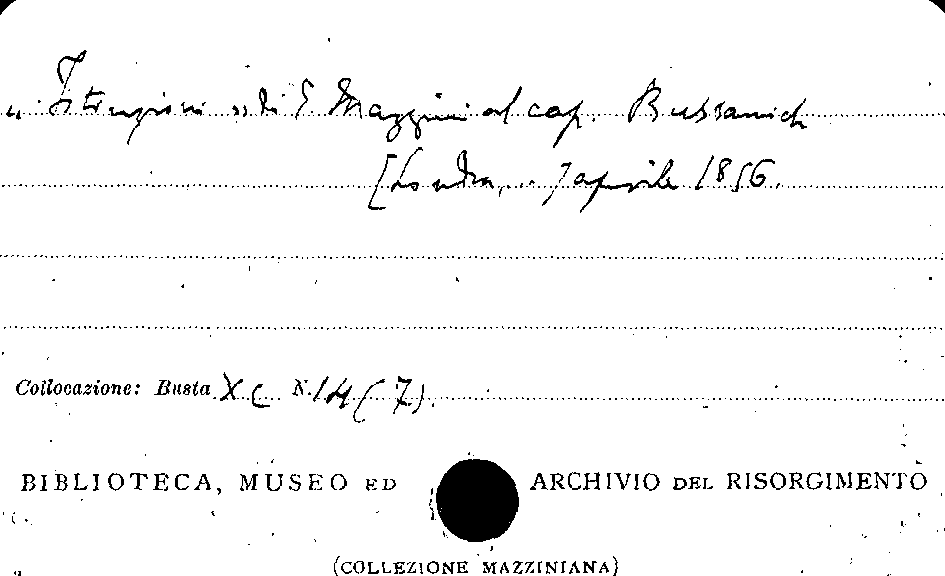 "Istruzioni" di G. Mazzini al cap. Bussanich
[Londra, .. 7 aprile 1856.
Collocazione: Busta XC N. 14 (7).
BIBLIOTECA, MUSEO ED ARCHIVIO DEL RISORGIMENTO
(COLLEZIONE MAZZINIANA)